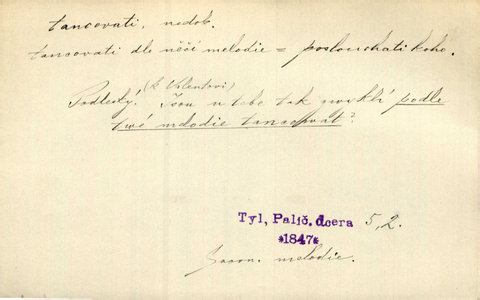 tancovati, nedok.
tancovati dle něčí melodie = poslouchati koho.
(k Valentovi)
Podlesky! Jsou u tebe tak zvyklí podle
twé melodie tancovat?
Tyl, Palič. dcera 5, 2.
*1847*
melodie.